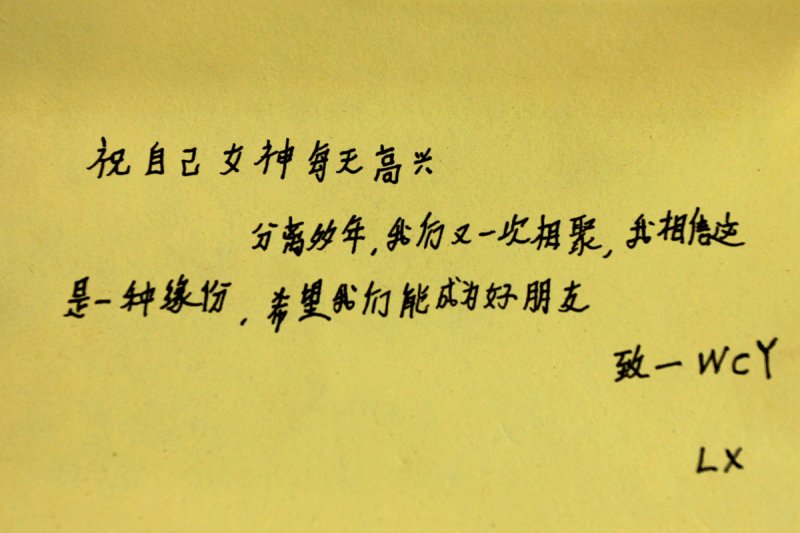 祝自己女神每天高兴
分离多年,我们又一次相聚,我相信这
是一种缘份,希望我们能成为好朋友
致一WCY
LX